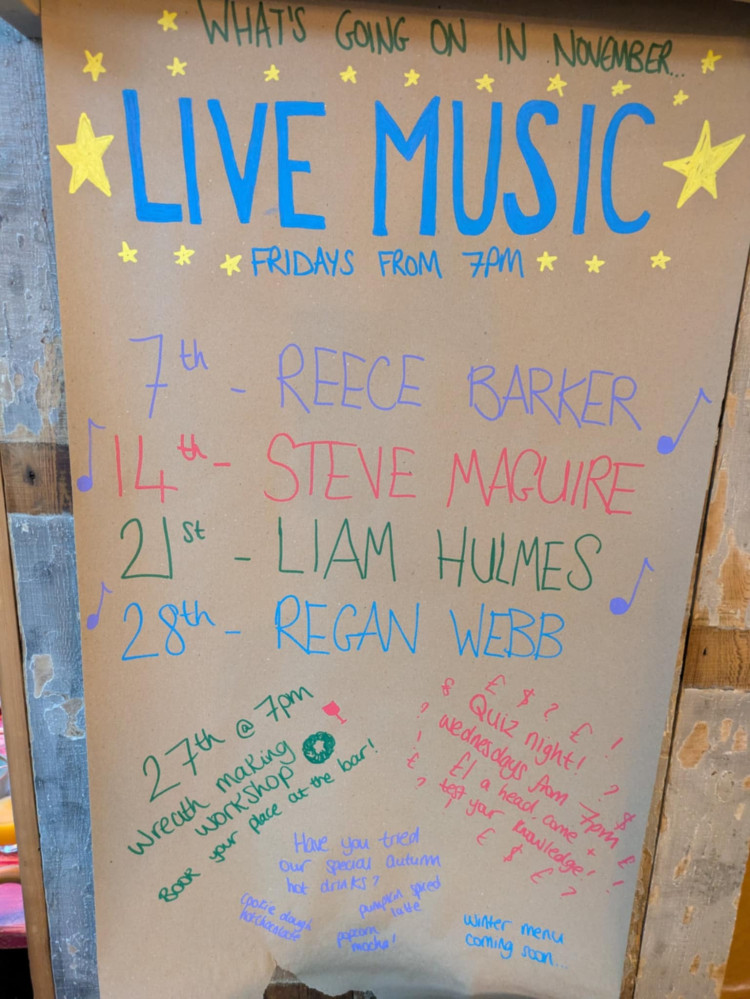 WHAT'S GOING ON IN NOVEMBER...
LIVE MUSIC
FRIDAYS FROM 7PM
7th - REECE BARKER
14th - STEVE MAGUIRE
21st - LIAM HULMES
28th - REGAN WEBB
27th @ 7pm
Wreath making
workshop
Book your place at the bar!
£ $ ? £ !
Quiz night!
wednesdays from 7pm
£1 a head. come +
test your knowledge!
£ $ £ ?
Have you tried
our special autumn
hot drinks?
cookie dough
hot chocolate
pumpkin spiced
latte
popcorn
mocha!
winter menu
coming soon...